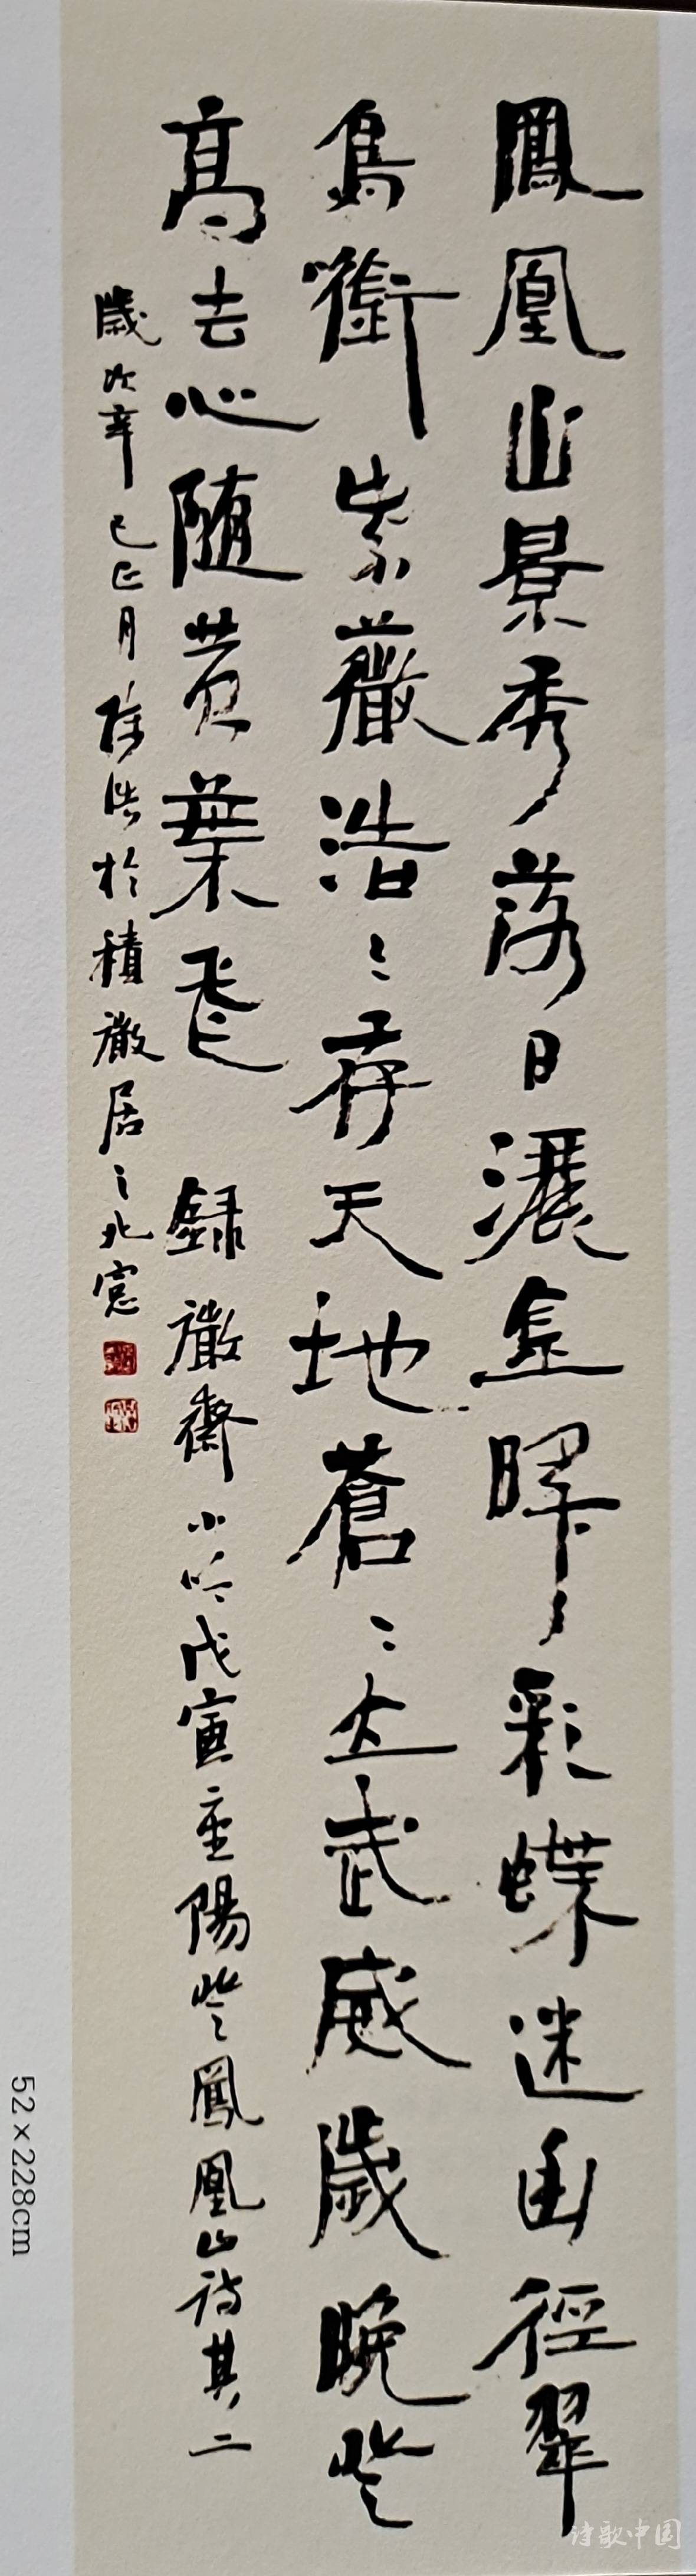 鳳凰山景秀落日灑金暉彩蝶迷幽徑翠
鳥銜紫薇浩〻存天地蒼〻立武威歲晚登
高去心隨黄葉飛 録徽齋小吟戊寅重陽登鳳凰山詩其二
歲次辛巳正月 浩於積徽居之北窗
52×228cm
诗歌中国